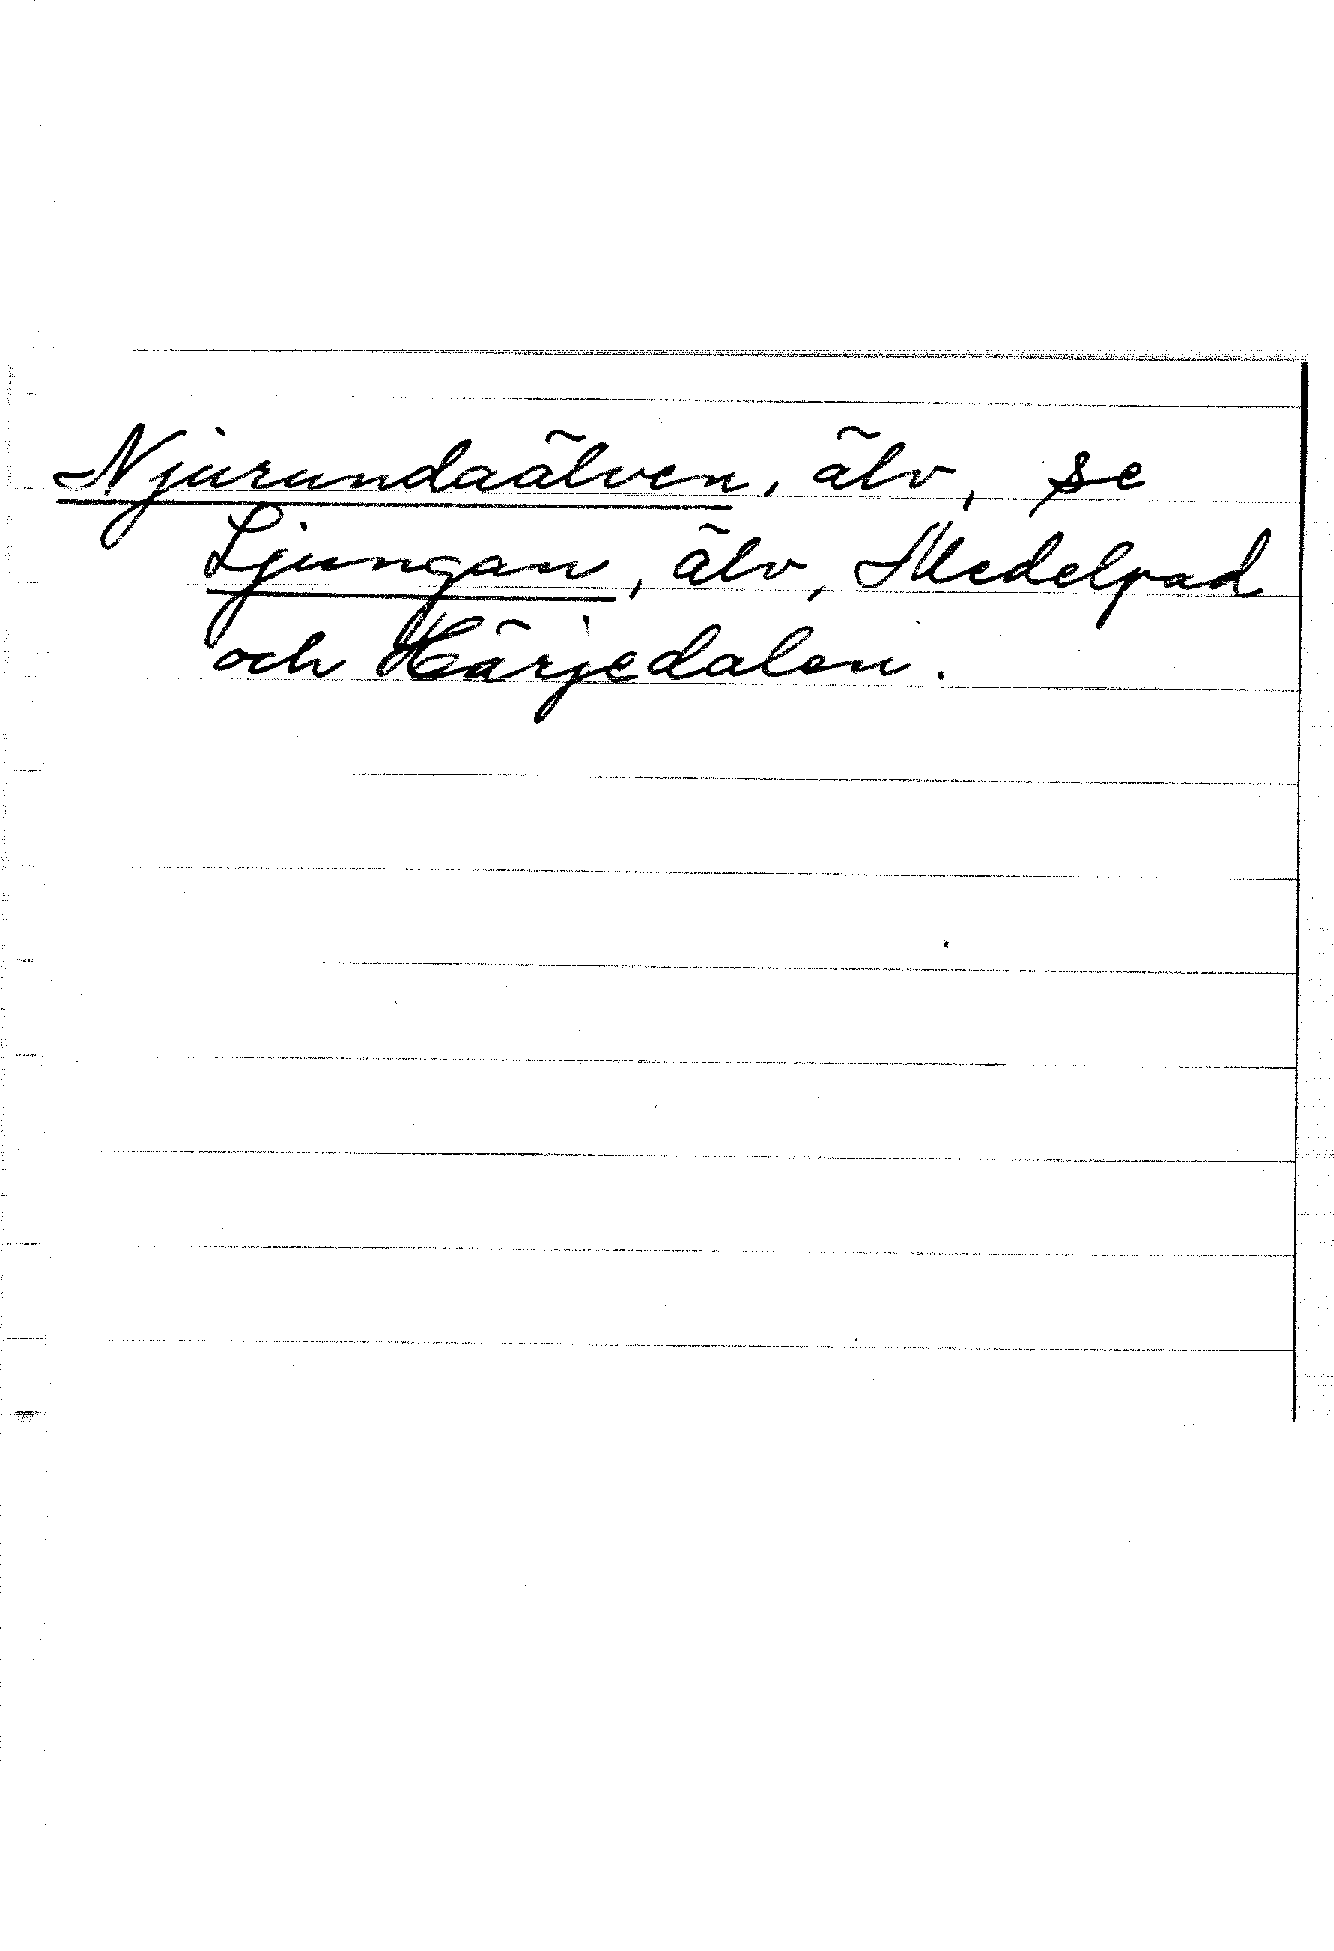 Njurundaälven, älv, se
Ljungan, älv, Medelpad
och Härjedalen.